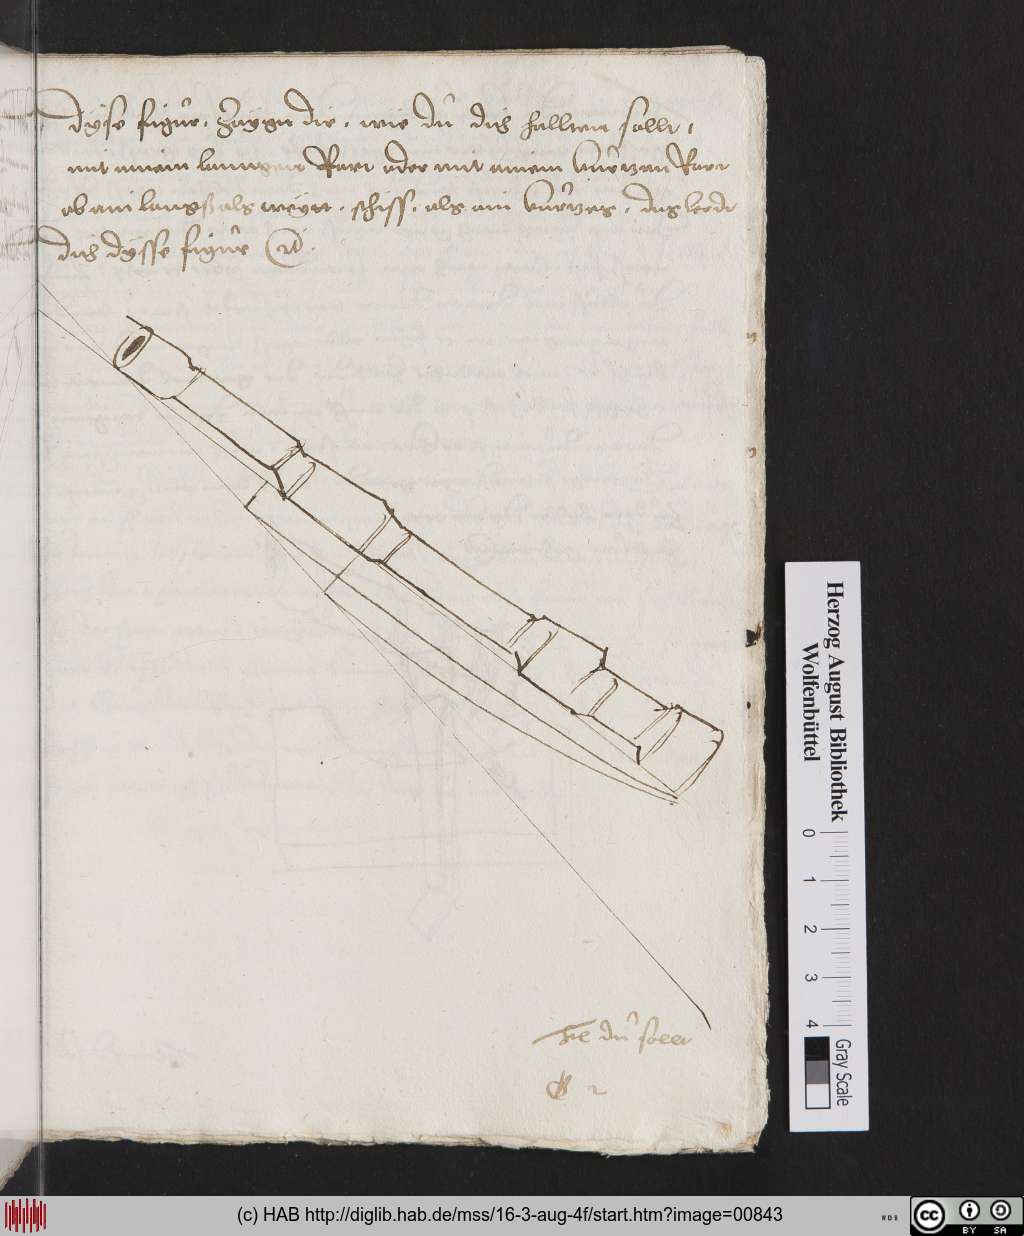 dÿse figur. Zaÿgt dir. wie du dich hallten sollt,
mit ainem lanngen Rorr oder mit ainem kurtzen Rorr
ob ain langß als weÿtt. schiss. als ain kurtzes. das lernt
dich dÿsse figur
du sollt
2
Herzog August Bibliothek
Wolfenbüttel
0 1 2 3 4
Gray Scale
(c) HAB http://diglib.hab.de/mss/16-3-aug-4f/start.htm?image=00843
WDB
cc BY SA